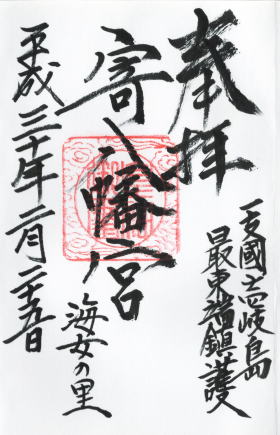 奉拝
一支國壱岐島
最東端鎮護
寄八幡宮
海女の里
平成三十年二月二十五日